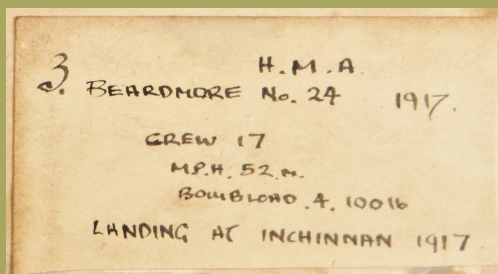 H.M.A.
3. BEARDMORE No. 24 1917.
CREW 17
M.P.H. 52 M.
BOMBLOAD .4. 100lb
LANDING AT INCHINNAN 1917